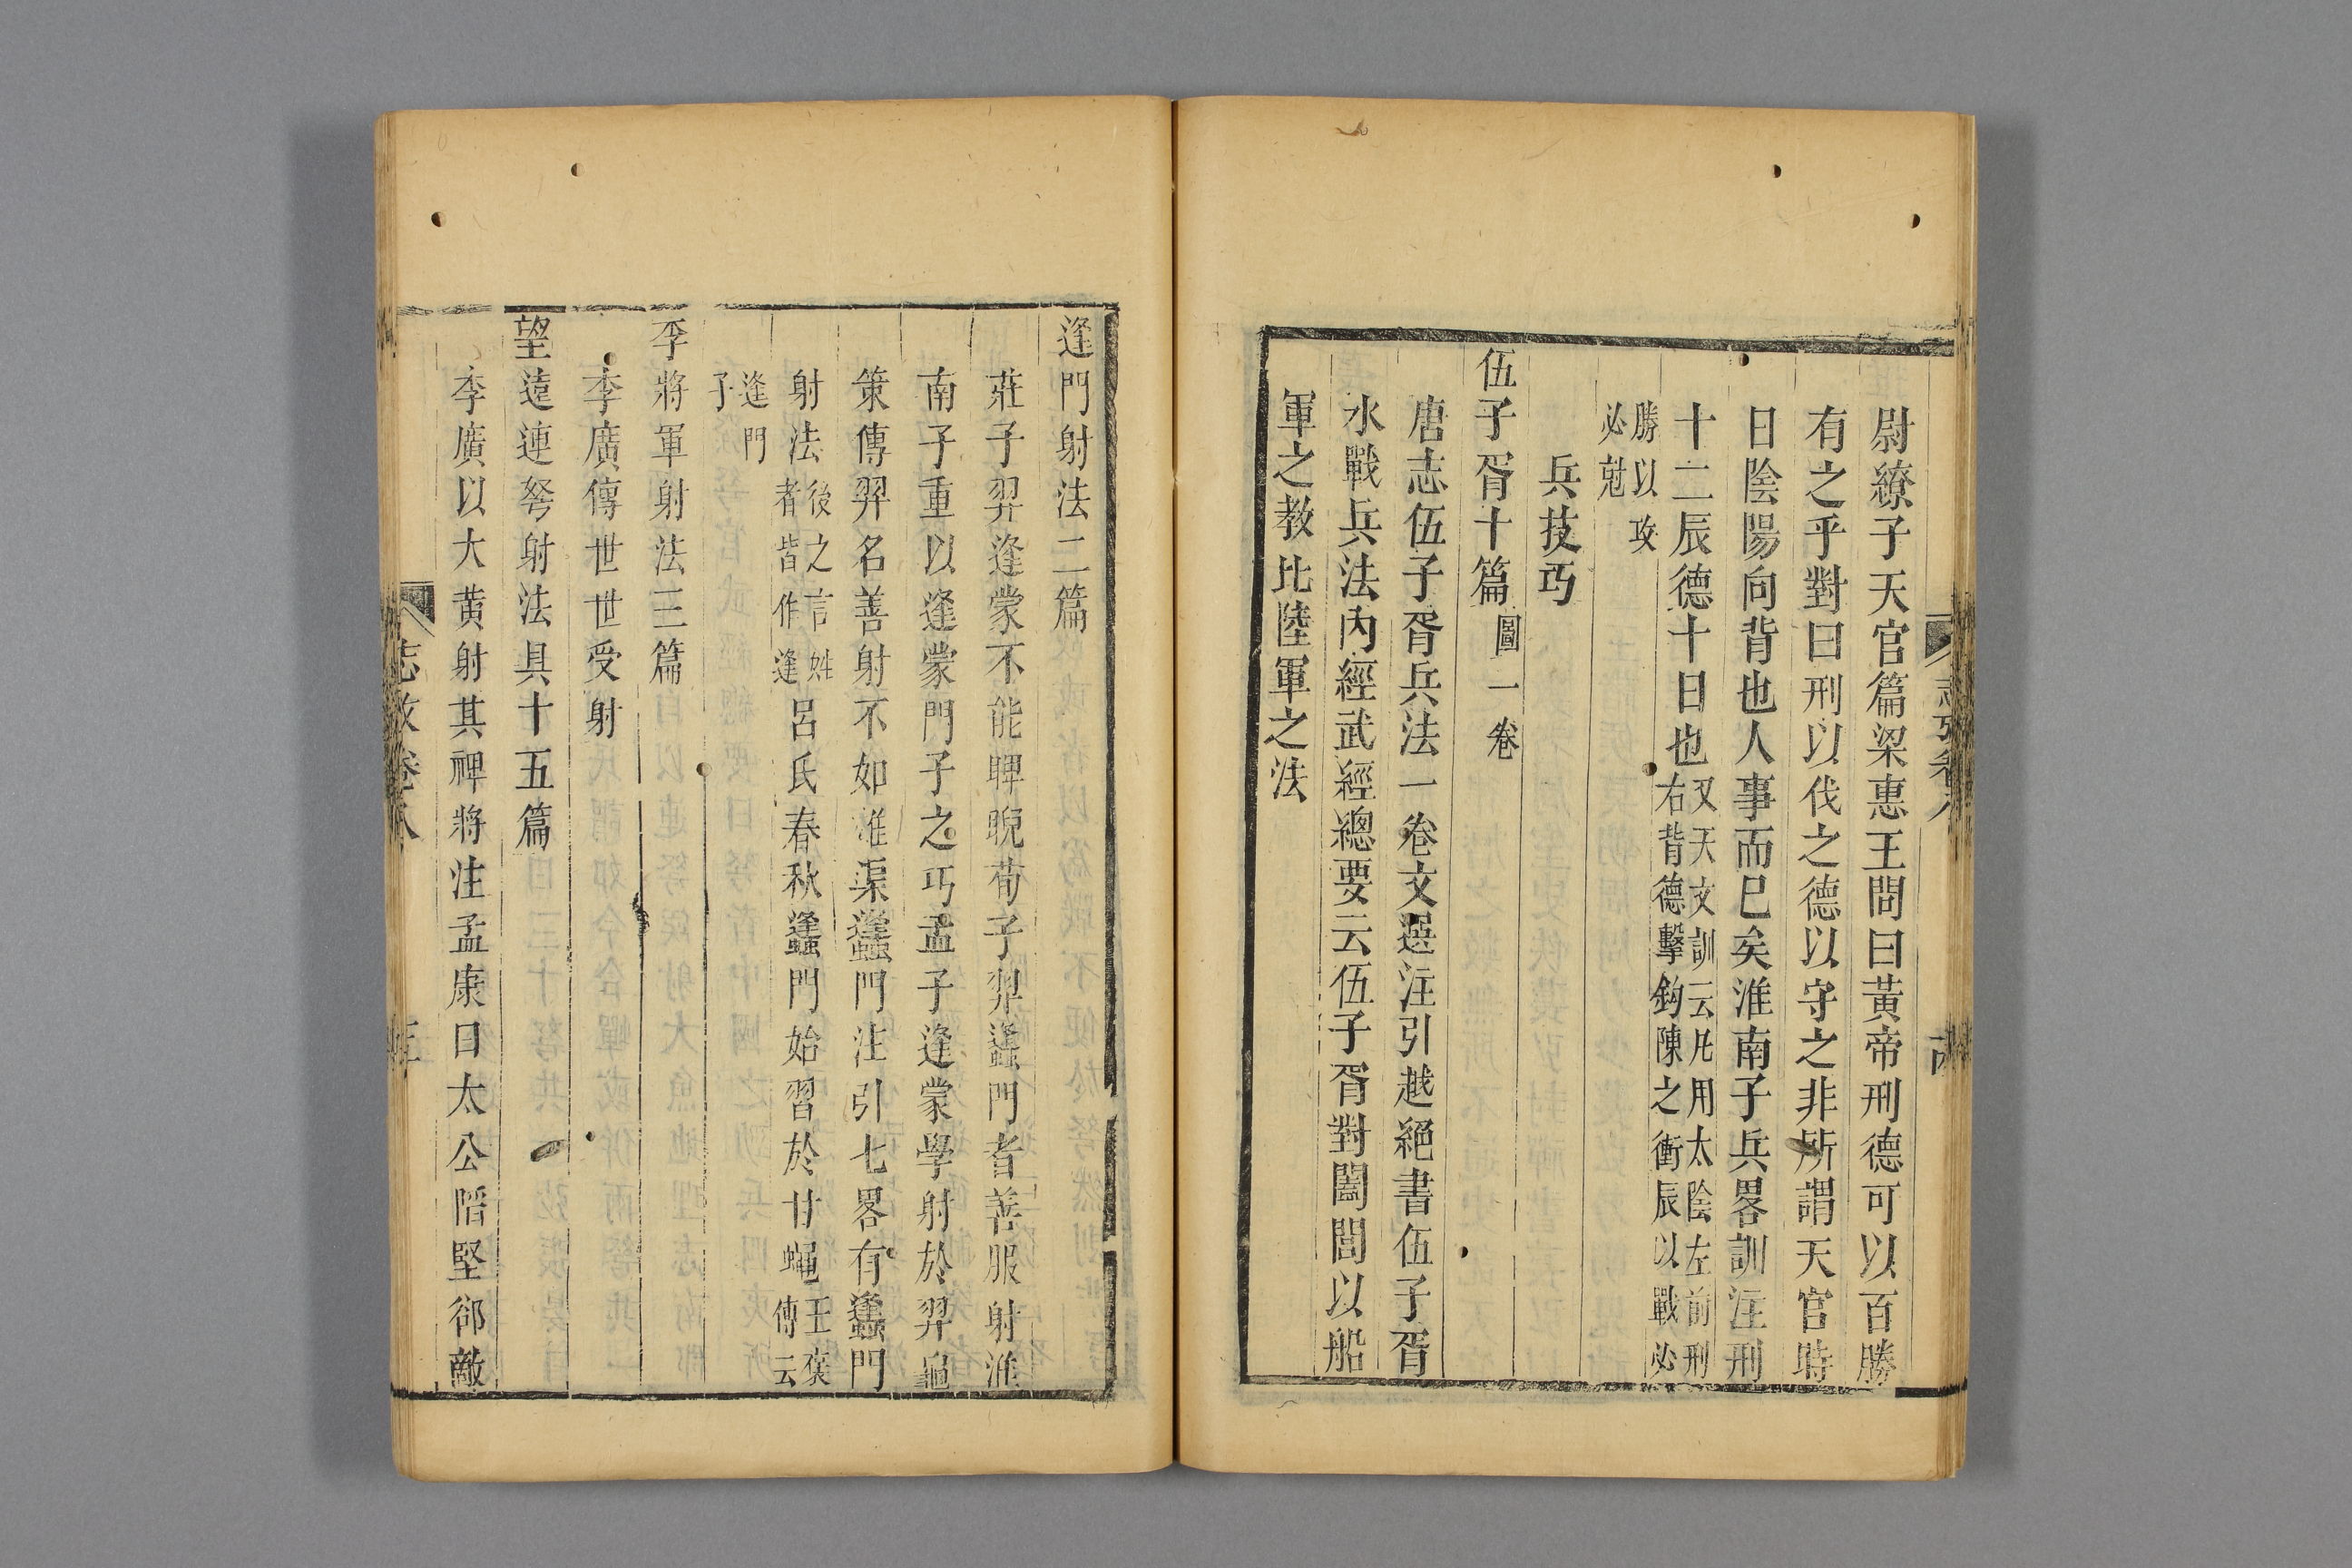 尉繚子天官篇梁惠王問曰黃帝刑德可以百勝
有之乎對曰刑以伐之德以守之非所謂天官時
日陰陽向背也人事而已矣淮南子兵畧訓注刑
十二辰德十日也又天文訓云凡用太陰左前刑
右背德擊鉤陳之衝辰以戰必
勝以攻
必尅
兵技巧
伍子胥十篇圖一卷
唐志伍子胥兵法一卷文選注引越絕書伍子胥
水戰兵法內經武經總要云伍子胥對闔閭以船
軍之教比陸軍之法
逢門射法二篇
莊子羿逢蒙不能睥睨荀子羿蠭門者善服射淮
南子重以逢蒙門子之巧孟子逢蒙學射於羿龜
策傳羿名善射不如雄渠蠭門注引七畧有蠭門
射法後之言姓
者皆作逢
呂氏春秋蠭門始習於甘蠅王襃
傳云
逢門
子
李將軍射法三篇
李廣傳世世受射
望遠連弩射法具十五篇
李廣以大黃射其裨將注孟康曰太公陷堅郤敵
志攷卷八